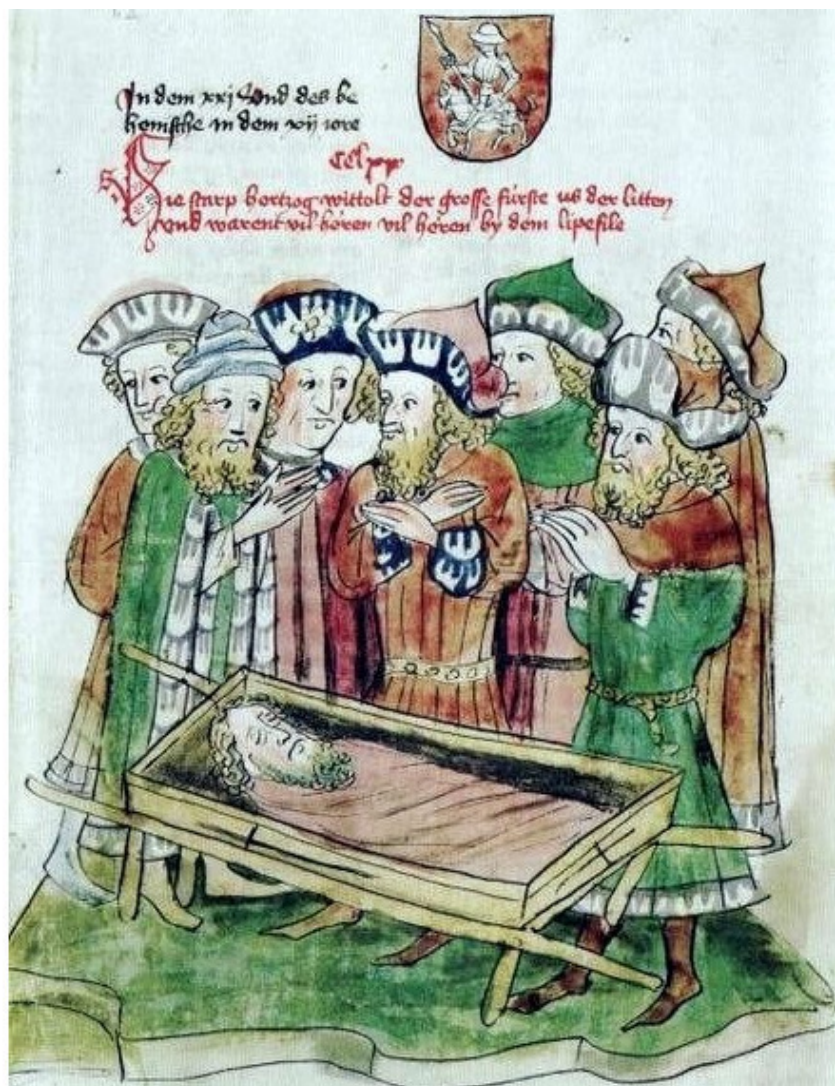 In dem xxj vnd des be
hemsche in dem xij iore
Hie starp hertzog wittolt der grosse fürste us der litten
vnd warent vil heren vil heren by dem lipefile